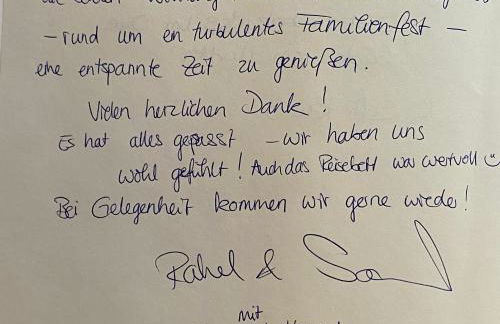 – rund um en turbulentes Familienfest –
eine entspannte Zeit zu genießen.
Vielen herzlichen Dank!
Es hat alles gepasst – wir haben uns
wohl gefühlt! Auch das Reisebett war wertvoll ☺
Bei Gelegenheit kommen wir gerne wieder!
Rahel &
mit